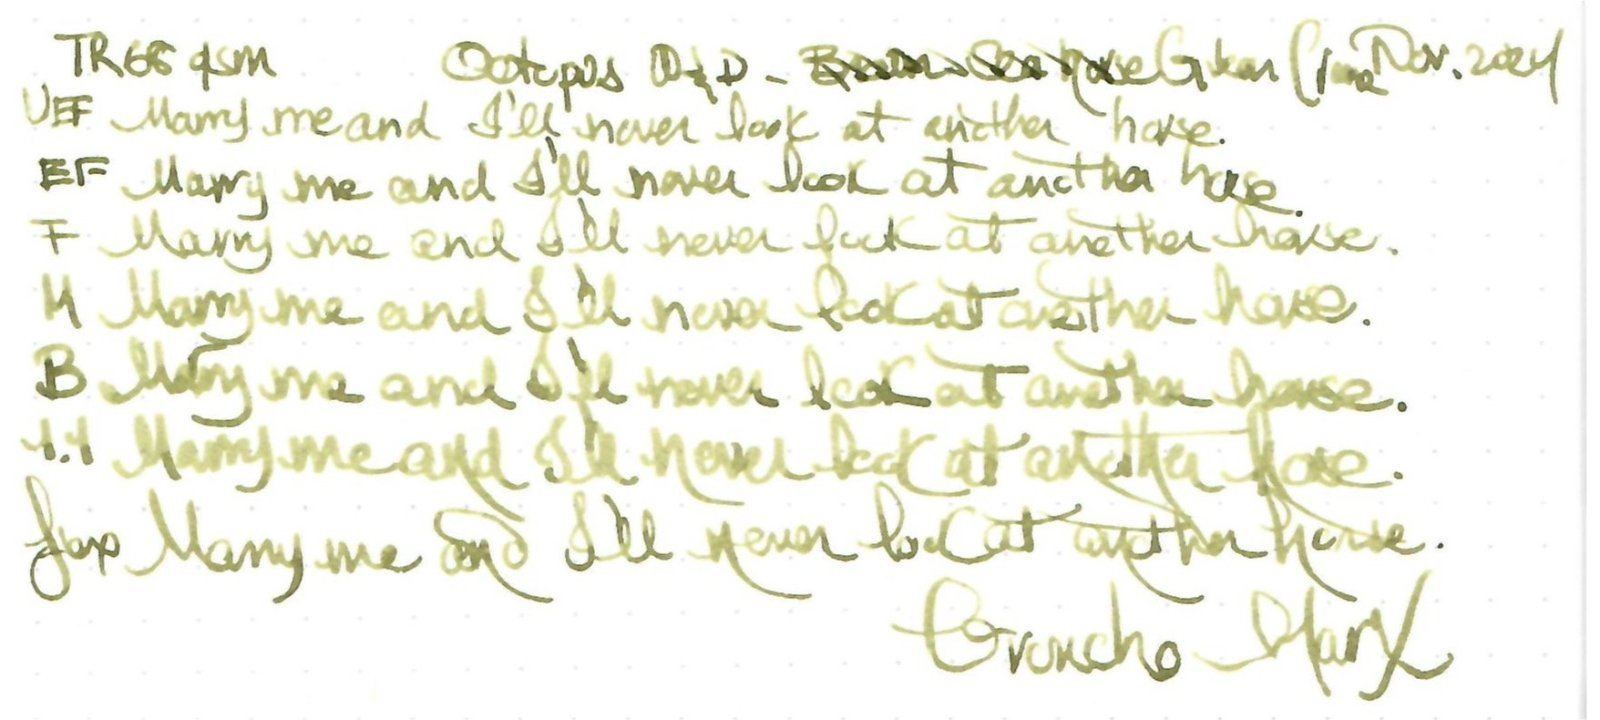 TR 68 gsm Octopus W&D - Brown Sea Horse Golden Crane Nov. 2024
UEF Marry me and I'll never look at another horse.
EF Marry me and I'll never look at another horse.
F Marry me and I'll never look at another horse.
M Marry me and I'll never look at another horse.
B Marry me and I'll never look at another horse.
1.1 Marry me and I'll never look at another horse.
flex Marry me and I'll never look at another horse.
Groucho Marx